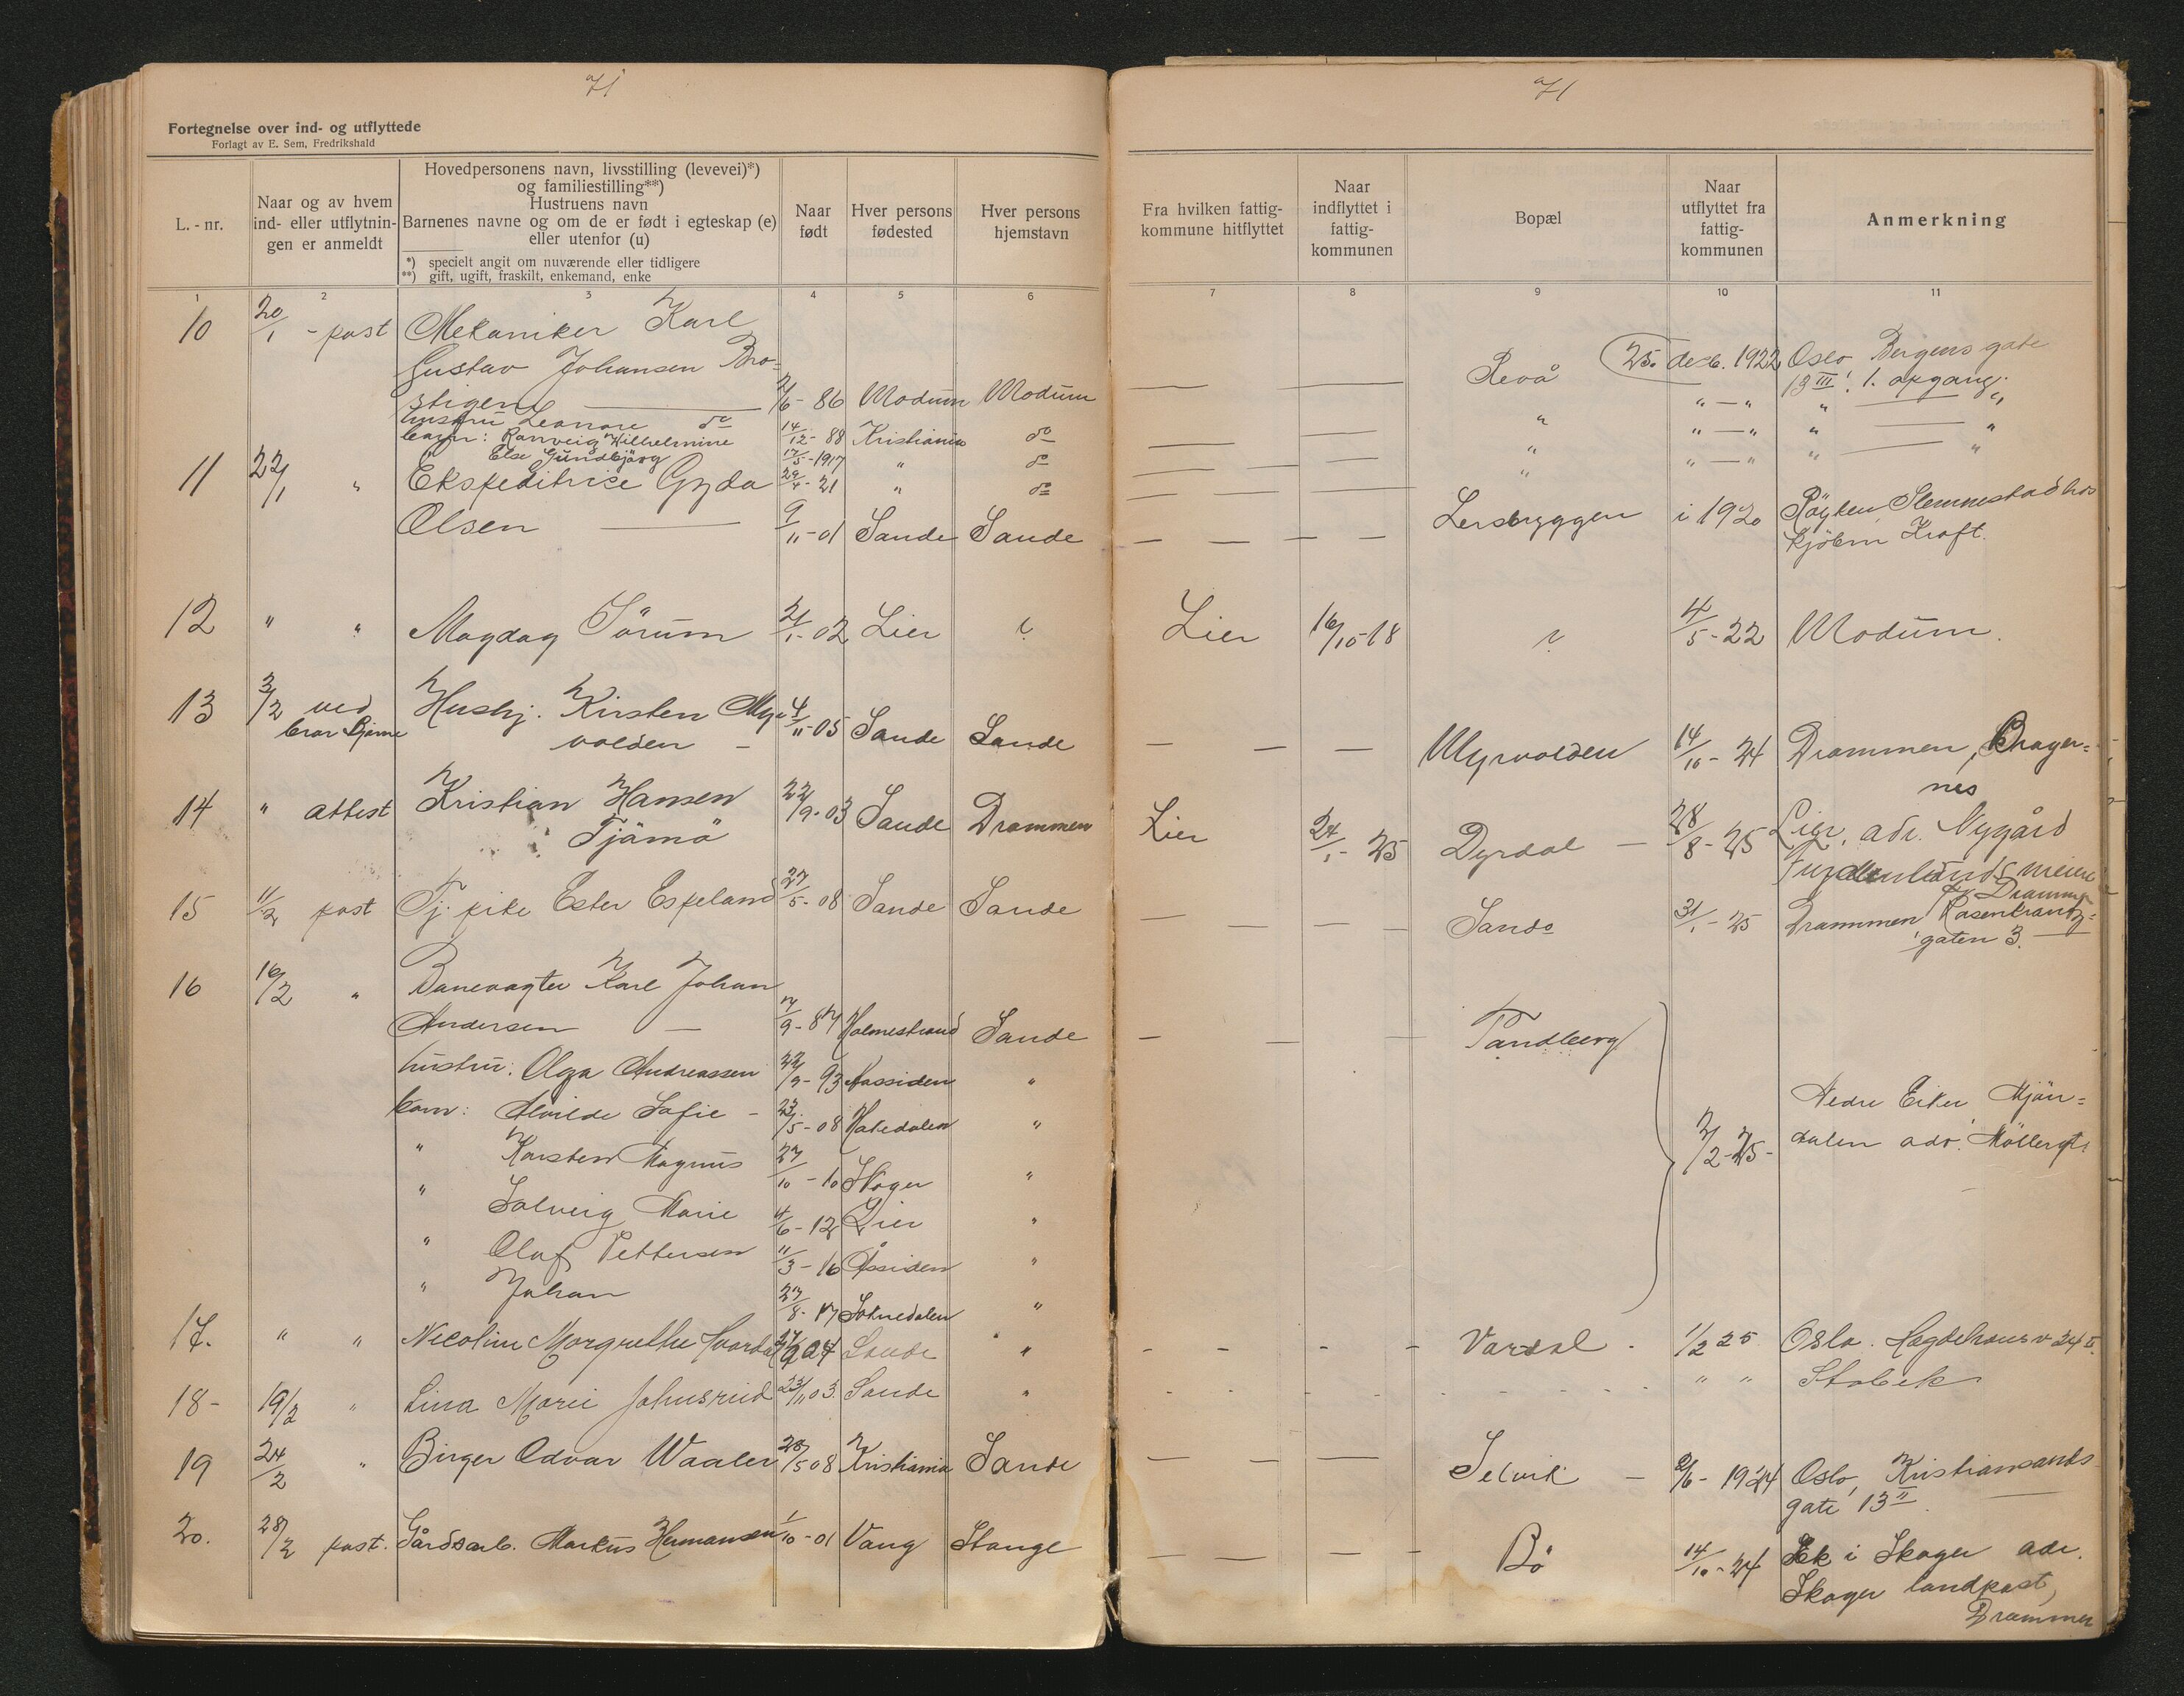 71
Fortegnelse over ind- og utflyttede
Forlagt av E. Sem, Fredrikshald
L.-nr.
Naar og av hvem
ind- eller utflytnin-
gen er anmeldt
Hovedpersonens navn, livsstilling (levevei)*)
og familiestilling**)
Hustruens navn
Barnenes navne og om de er født i egteskap (e)
eller utenfor (u)
*) specielt angit om nuværende eller tidligere
**) gift, ugift, fraskilt, enkemand, enke
Naar
født
Hver persons
fødested
Hver persons
hjemstavn
1 2 3 4 5 6
10 20/1 - post Mekaniker Karl
Gustav Johansen Bro-
stigen — 2/6 - 86 Modum Modum
hustru Leonore do 14/12 - 88 Kristiania do
barn: Ranveig Wilhelmine 17/5 - 1917 " do
Else Gundbjørg 29/4 - 21 " do
11 22/1 " Ekspeditrise Gyda
Olsen — 9/11 - 01 Sande Sande
12 " " Magdag Sørum 2/1 - 02 Lier ?
13 3/2 ved Hushj. Kirsten Myr 4/11 - 05 Sande Sande
bror Bjarne volden -
14 " attest Kristian Hansen 22/9 - 03 Sande Drammen
Tjämö
15 11/2 post Tj. pike Ester Espeland 27/5 - 08 Sande Sande
16 16/2 " Banevagter Karl Johan
Andersen — 7/9 - 87 Holmestrand Sande
hustru: Olga Andreassen 22/9 - 93 Aassiden "
barn: Alvilde Sofie - 23/5 - 08 "
" Karsten Magnus 27/10 - 10 Skoger "
" Solveig Marie 4/6 - 12 Lier "
" Olaf Pettersen 11/3 - 16 Åssiden "
" Johan 27/8 - 17 "
17. " " Nicoline Margrethe 04 Sande "
18 - 19/2 " Lina Marie Johnsrud 23/11 03. Sande "
19 24/2 " Birger Odvar Waaler 28/5 08 Kristiania Sande
20. 28/2 post. Gårdsarb. Markus Hermansen 1/10 - 01 Vang Stange
71
Fra hvilken fattig-
kommune hitflyttet
Naar
indflyttet i
fattig-
kommunen
Bopæl
Naar
utflyttet fra
fattig-
kommunen
Anmerkning
7 8 9 10 11
— — Revå 25. desb. 1922 Oslo, Bergens gate
13 III. 1. opgang.
— — " " — " " — "
— — " " — " " — "
— — " " — " " — "
— — — — Lersbryggen i 1920 Røyken, Slemmestad hos
kjöbm Kroft.
Lier 16/10 - 18 ? 4/5 - 22 Modum.
— — — Myrvolden 14/10 - 24 Drammen, Brager-
nes
Lier 24/1 - 25 Dyrdal — 28/8 - 25 Lier, adr. Nygård
pr. Drammen
— — — — Sando 31/1 - 25 Drammen, Rosenkrantz-
gaten 3.
— — — Tandberg
2/2 - 25 - Nedre Eiker, Mjön-
dalen adr. Möllergt.
- - - - Vardal - 1/2 25 Oslo. Hegdehausv 24 II.
- - - - " " Stabek
— — — Selvik — 2/6 - 1924 Oslo, Kristiansands
gate 13 II.
— — — — Bö 14/10 - 24 Ek i Skoger adr.
Skoger landpost,
Drammen